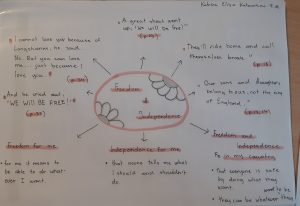 A great shout went
up, "We will be free!"
"I cannot love you because of
Longshanks, he said.
No. But you can love
me... just because I
love you."
"They'll ride home and call
themselves brave."
And he cried out,
"WE WILL BE FREE!"
Our sons and daughters
belong to us, not the
of England."
Freedom
&
Independence
Freedom for me
• for me it means to
be able to do what
ever I want.
Independence for me
• that noone tells me what
I should and shouldn't
do.
Freedom and
Independence
in my country
• that everyone is safe
by doing what they
want.
• they can be whatever they
want to be